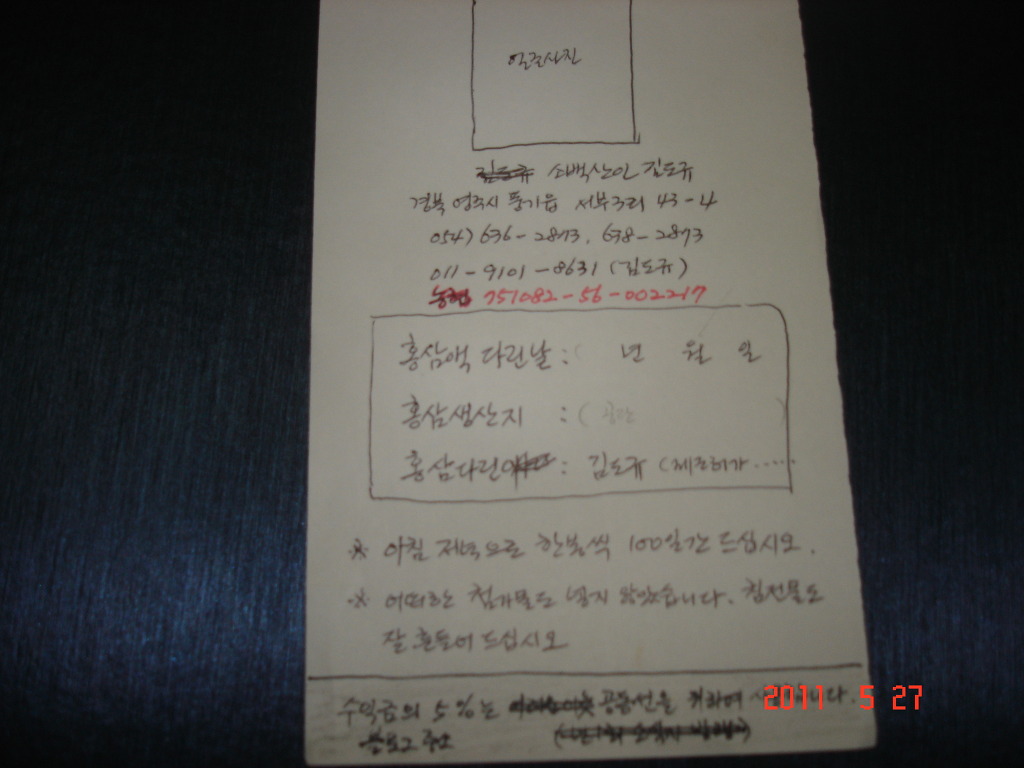 얼굴사진
소백산인 김도규
경북 영주시 풍기읍 서부구리 43-4
054) 636-2873, 638-2873
011-9101-8631 (김도규)
농협 751082-56-002217
홍삼액 다린날 : ( 년 월 일
홍삼생산지 : ( )
홍삼다린 : 김도규 (제조허가 ......
※ 아침 저녁으로 한봉씩 100일간 드십시오.
※ 어떠한 첨가물도 넣지 않았습니다. 침전물도
잘 흔들어 드십시오
수익금의 5%는 공동선을 위하여
블로그 주소
2011 5 27